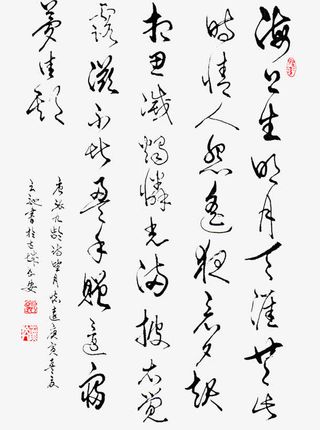 海上生明月天涯共此
时情人怨遥夜竟夕起
相思灭烛怜光满披衣觉
露滋不堪盈手赠还寝
梦佳期
唐张九龄诗望月怀远庚寅
书于古城长安